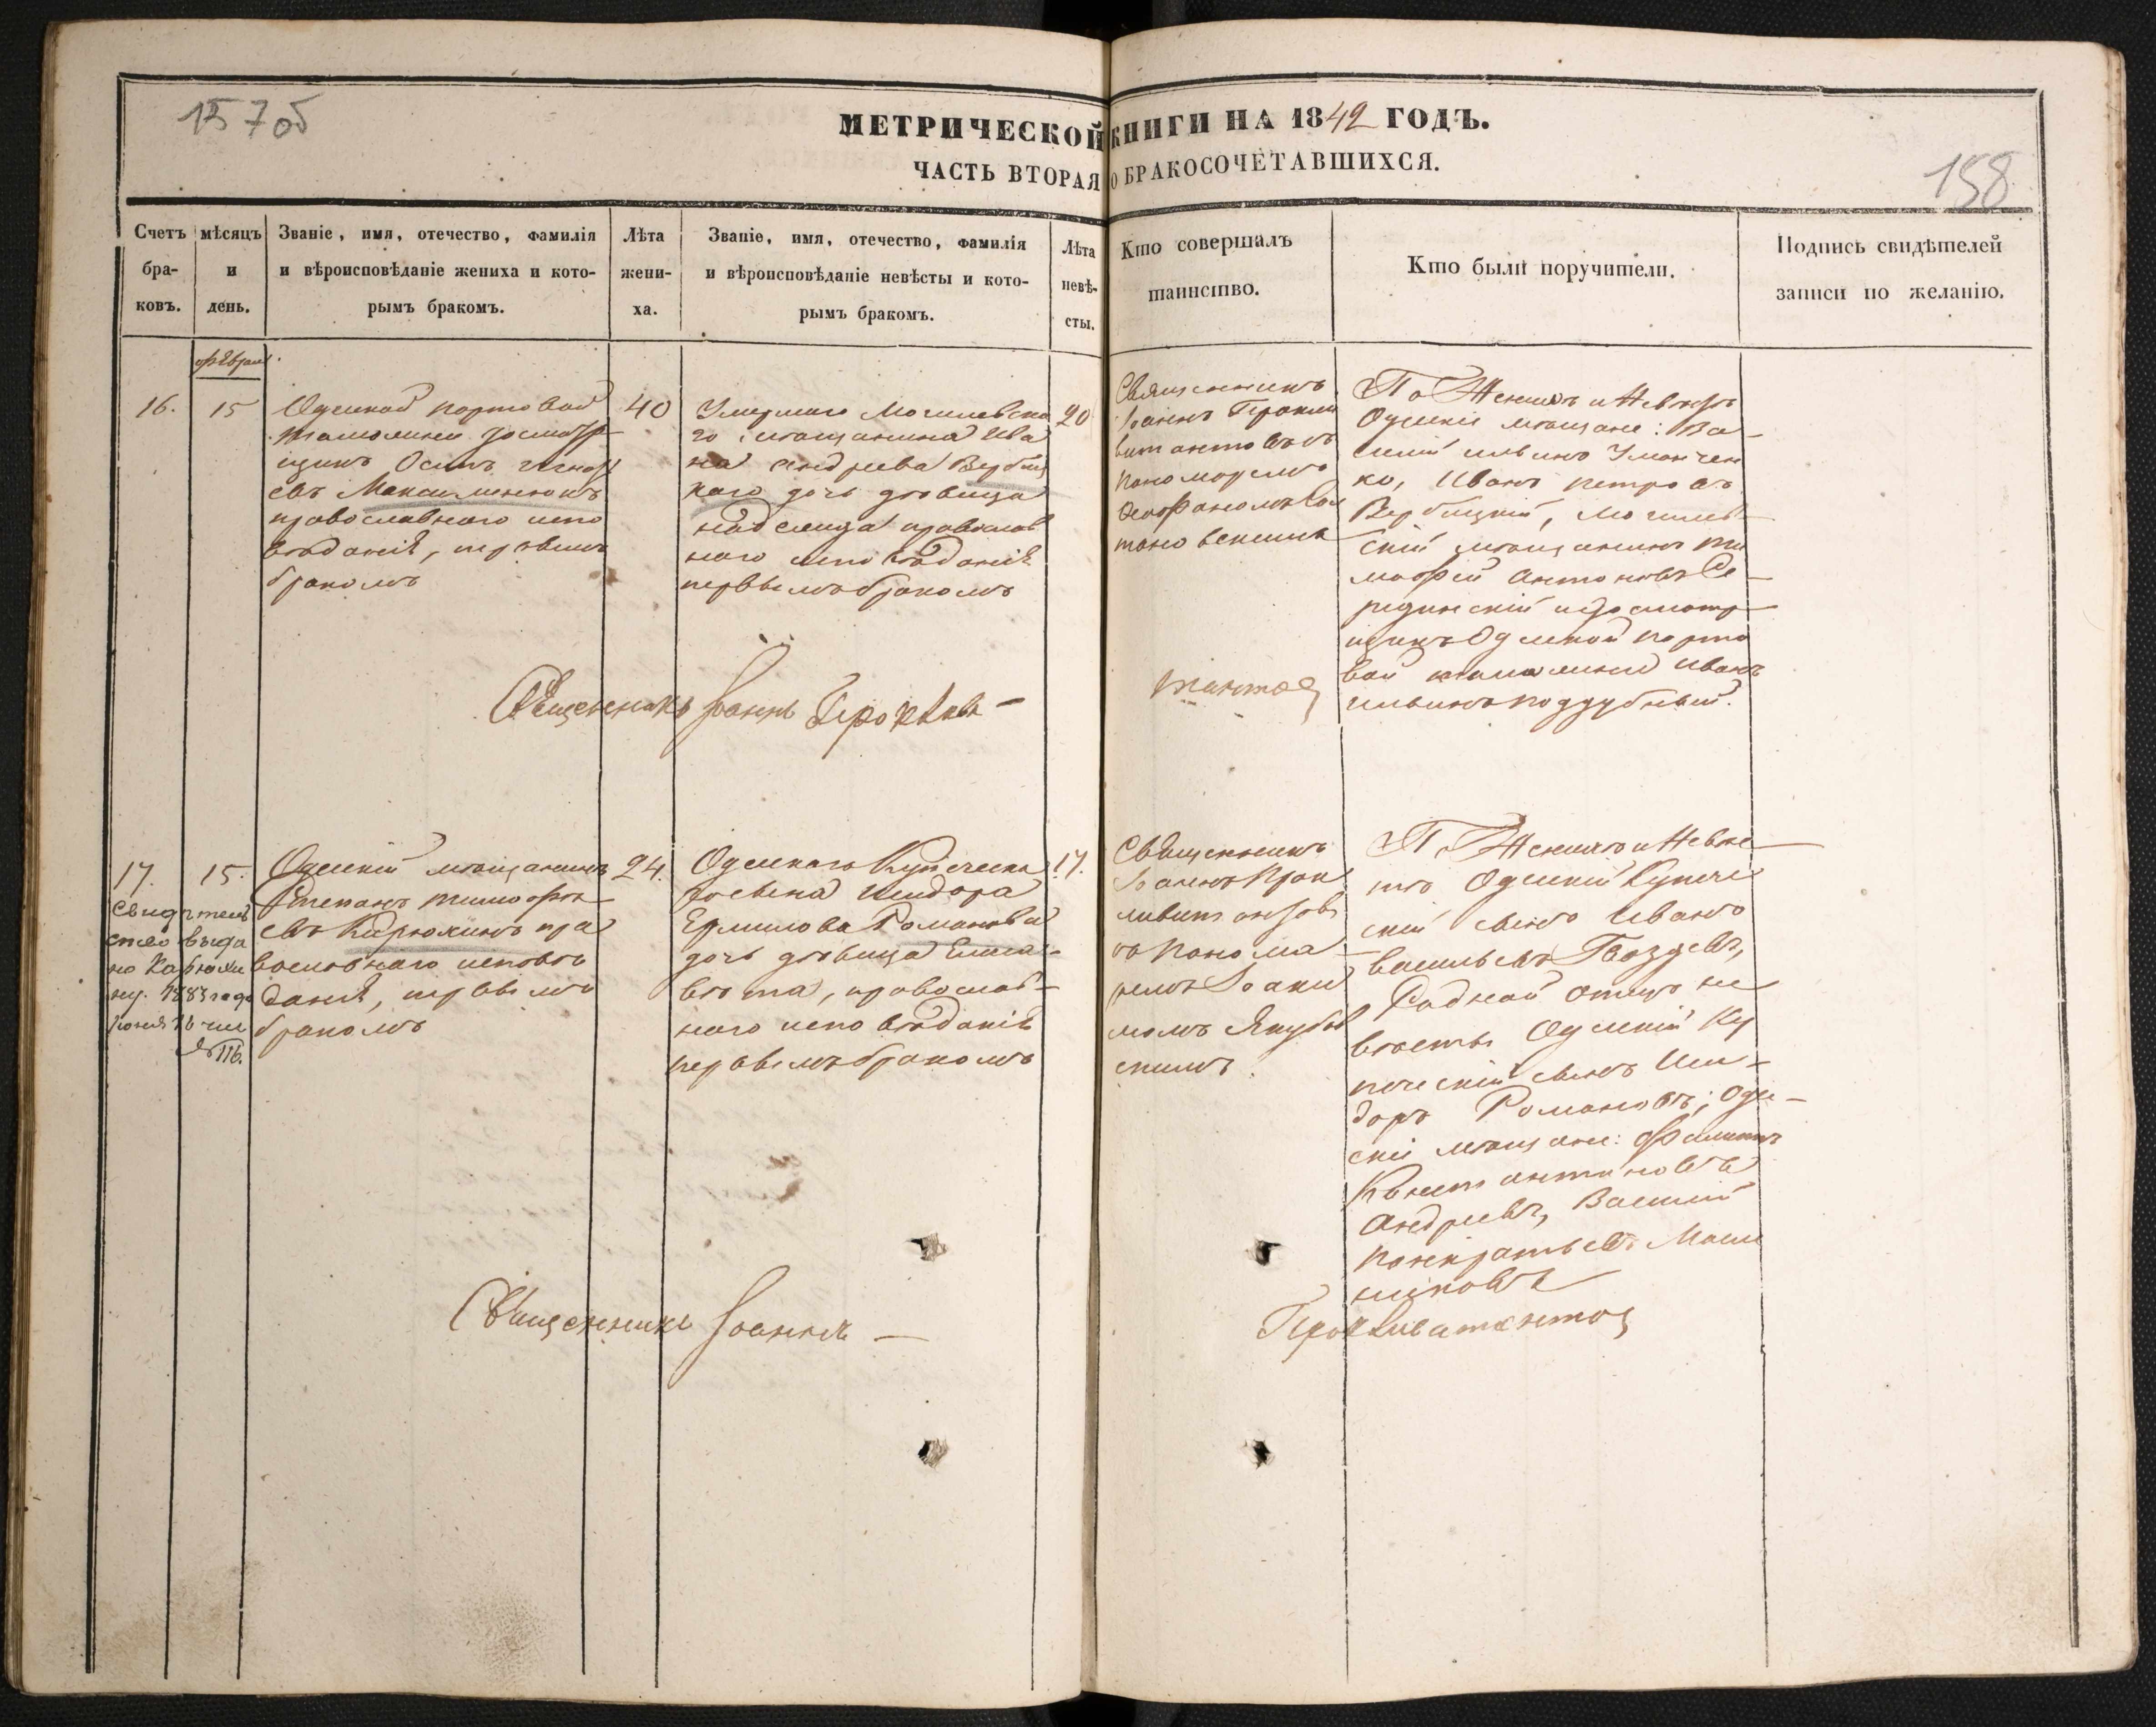 157об
МЕТРИЧЕСКОЙ КНИГИ НА 1842 ГОДЪ.
ЧАСТЬ ВТОРАЯ О БРАКОСОЧЕТАВШИХСЯ.
158
Счетъ бра-
ковъ.
мѣсяцъ
и
день.
Званіе, имя, отечество, фамилія
и вѣроисповѣданіе жениха и кото-
рымъ бракомъ.
Лѣта
жени-
ха.
Званіе, имя, отечество, фамилія
и вѣроисповѣданіе невѣсты и кото-
рымъ бракомъ.
Лѣта
невѣ-
сты.
Кто совершалъ
таинство.
Кто были поручители.
Подпись свидѣтелей
записи по желанію.
февраль
16.
15
Одеской портовой
таможни досмотр
щикъ Осипъ
евъ Максименюкъ
православнаго испо
вѣданія, первымъ
бракомъ
40
Умершаго Могилевска
го мѣщанина Ива
на Андреева Вербиц
каго дочь дѣвица
православ
наго исповѣданія
первымъ бракомъ
20
Священникъ
Іоаннъ Геракли
витантовъ съ
пономаремъ
По Женихѣ и Невѣстѣ
Одескіе мѣщане: Ва-
силій Ильинъ Уманчен
ко, Иванъ Петровъ
Вербицкій, Могилев
скій мѣщанинъ Ти
мофей Антоновъ Се
рединскій и досмотр
щикъ Одеской порто
вой таможни Иванъ
Ильинъ Поддубный.
Священникъ Іоаннъ
17.
15.
Свидѣтель
ство выда
но Карюки
ну. 1883 года
Іюня 16 чис
№ 116.
Одескій мѣщанинъ
Степанъ Тимофѣ
евъ Карюкинъ пра
вославнаго исповѣ
данія, первымъ
бракомъ
24.
Одескаго Купеческа
го сына Исидора
Ермилова Романова
дочь дѣвица Елиса-
вѣта, православ-
наго исповѣданія
первымъ бракомъ
17.
Священникъ
Іоаннъ
съ понома
ремъ Іоаки
момъ Якубов
скимъ.
По Женихѣ и Невѣс
тѣ Одескій Купече
скій сынъ Иванъ
Васильевъ Гвоздевъ,
Родной отецъ не
вѣсты Одескій Ку
печескій сынъ Иси-
доръ Романовъ; Оде-
скіе мѣщане: Филиппъ
Константиновъ
Андреевъ, Василій
Панкратьевъ Масл
никовъ
Священникъ Іоаннъ